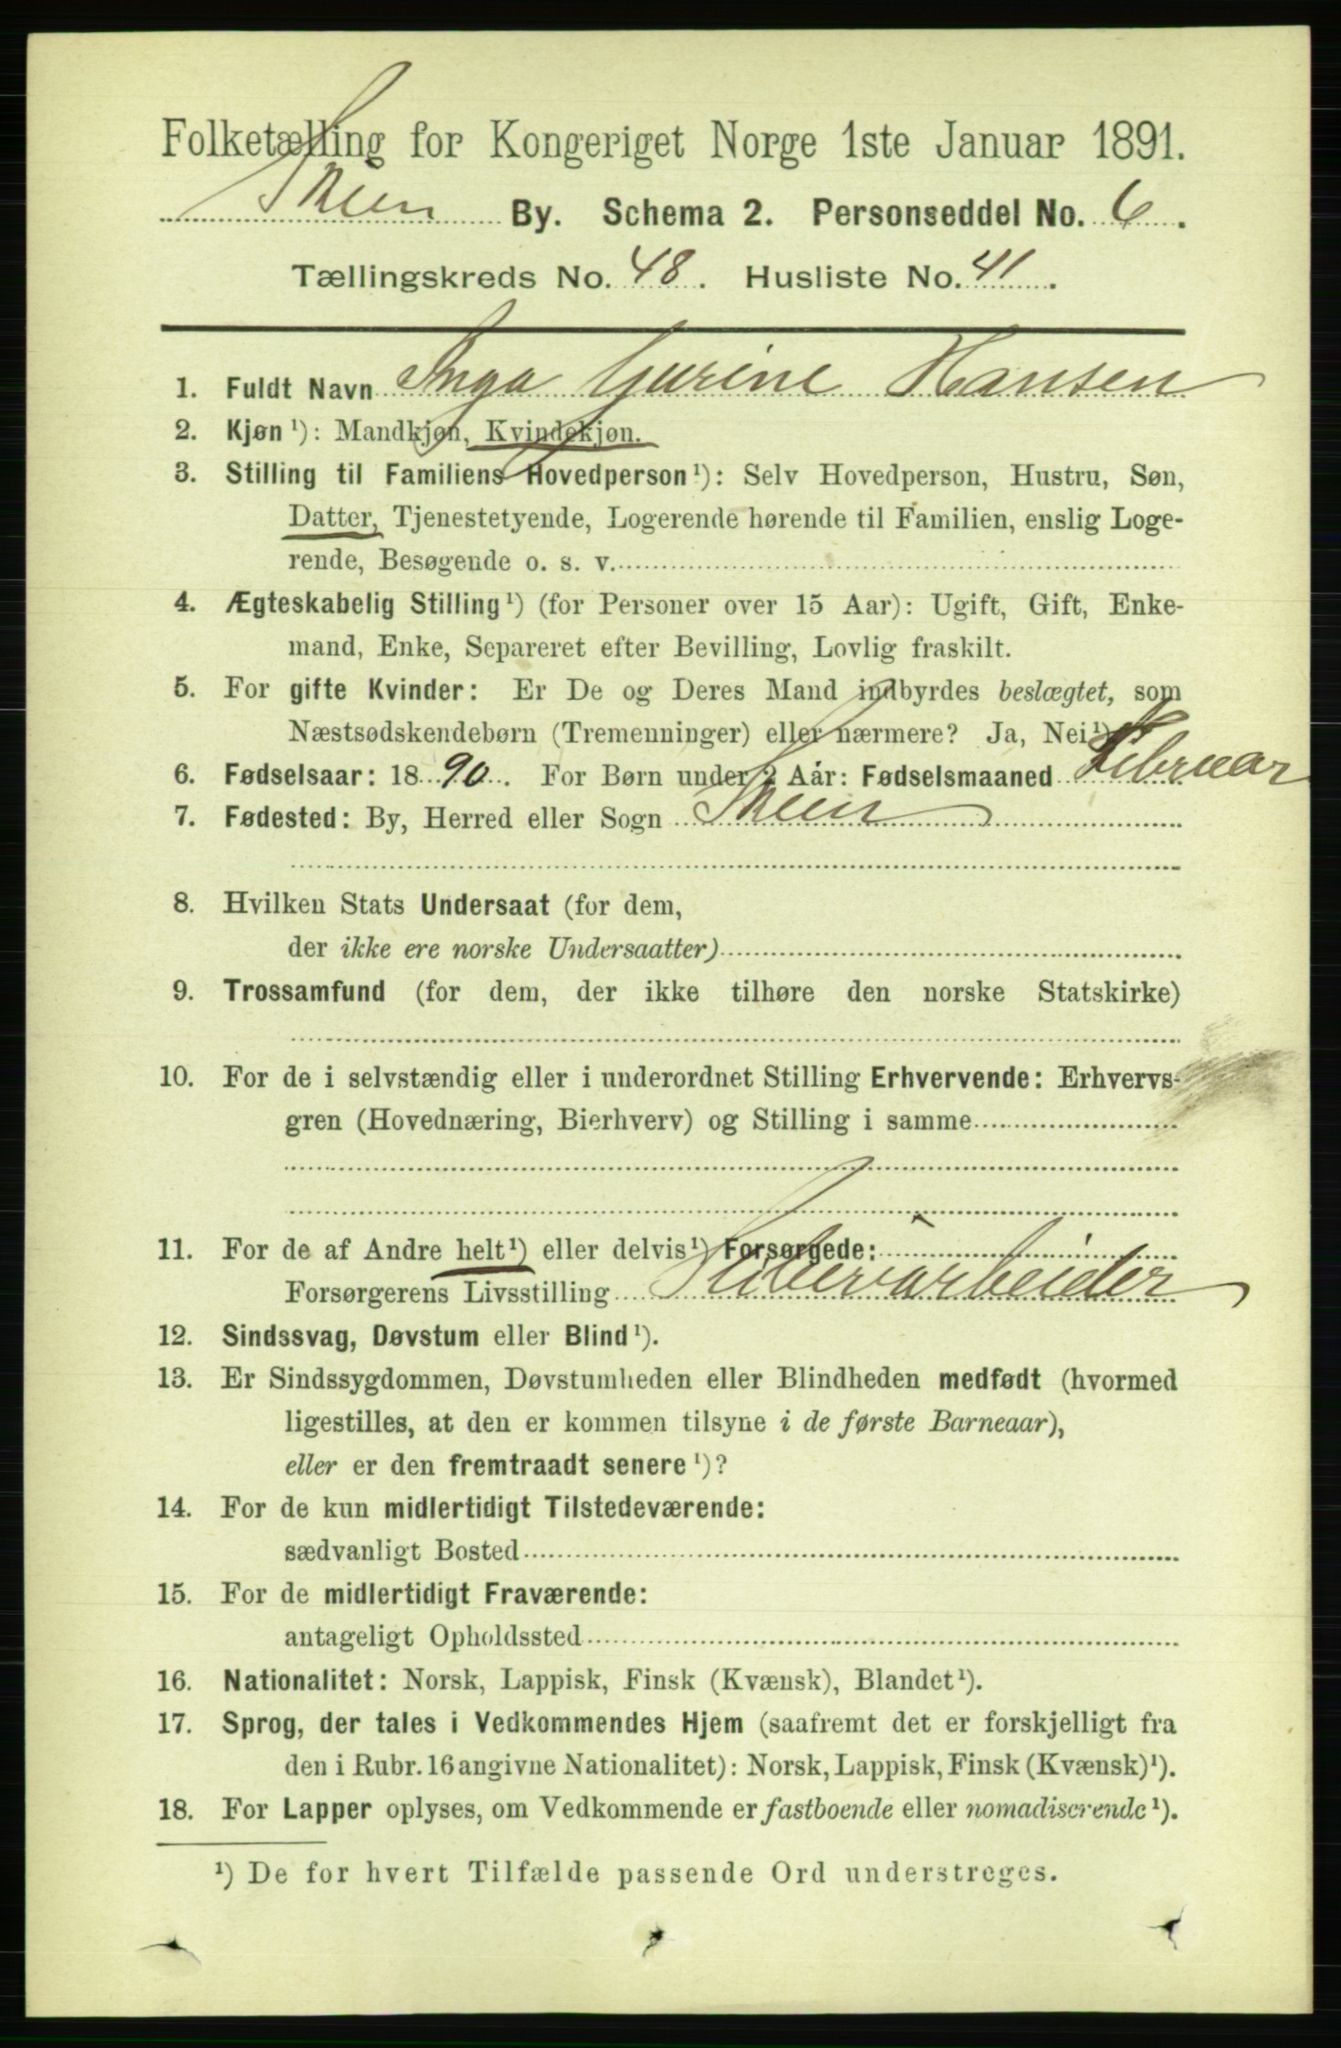 Folketælling for Kongeriget Norge 1ste Januar 1891.
Skien By. Schema 2. Personseddel No. 6.
Tællingskreds No. 48. Husliste No. 41.
1. Fuldt Navn Inga Gurine Hansen
2. Kjøn ¹): Mandkjøn, Kvindekjøn.
3. Stilling til Familiens Hovedperson ¹): Selv Hovedperson, Hustru, Søn,
Datter, Tjenestetyende, Logerende hørende til Familien, enslig Loge-
rende, Besøgende o. s. v.
4. Ægteskabelig Stilling ¹) (for Personer over 15 Aar): Ugift, Gift, Enke-
mand, Enke, Separeret efter Bevilling, Lovlig fraskilt.
5. For gifte Kvinder: Er De og Deres Mand indbyrdes beslægtet, som
Næstsødskendebørn (Tremenninger) eller nærmere? Ja, Nei ¹)
6. Fødselsaar: 1890. For Børn under 2 Aar: Fødselsmaaned Februar
7. Fødested: By, Herred eller Sogn Skien
8. Hvilken Stats Undersaat (for dem,
der ikke ere norske Undersaatter)
9. Trossamfund (for dem, der ikke tilhøre den norske Statskirke)
10. For de i selvstændig eller i underordnet Stilling Erhvervende: Erhvervs-
gren (Hovednæring, Bierhverv) og Stilling i samme
11. For de af Andre helt ¹) eller delvis ¹) Forsørgede:
Forsørgerens Livsstilling
12. Sindssvag, Døvstum eller Blind ¹).
13. Er Sindssygdommen, Døvstumheden eller Blindheden medfødt (hvormed
ligestilles, at den er kommen tilsyne i de første Barneaar),
eller er den fremtraadt senere ¹)?
14. For de kun midlertidigt Tilstedeværende:
sædvanligt Bosted
15. For de midlertidigt Fraværende:
antageligt Opholdssted
16. Nationalitet: Norsk, Lappisk, Finsk (Kvænsk), Blandet ¹).
17. Sprog, der tales i Vedkommendes Hjem (saafremt det er forskjelligt fra
den i Rubr. 16 angivne Nationalitet): Norsk, Lappisk, Finsk (Kvænsk) ¹).
18. For Lapper oplyses, om Vedkommende er fastboende eller nomadiserende ¹).
¹) De for hvert Tilfælde passende Ord understreges.